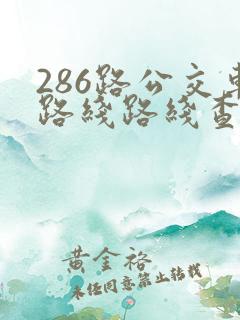 286路公交车
路线路线查
黄金裕
未经同意禁止转载